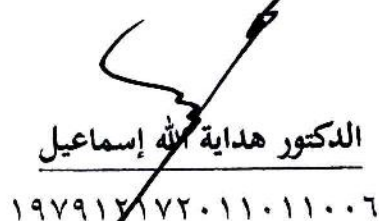 الدكتور هداية الله إسماعيل
١٩٧٩١٢١٧٢٠١١٠١١٠٠٦